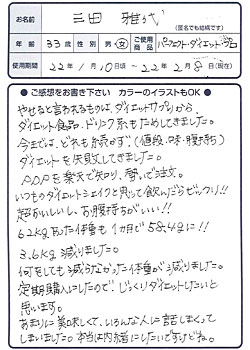 お名前 三田 雅代
(匿名でも結構です)
年齢 33歳 性別 男・女 ご使用商品 パーフェクト・ダイエットプロ
使用期間 22年1月10日ころ〜22年2月8日(現在)
●ご感想をお書き下さい カラーのイラストもOK●
やせると言われるものは、ダイエットサプリから
ダイエット食品・ドリンク系もためしてきました。
今までは、どれも続かず(値段・味・腹持ち)
ダイエットを失敗してきました。
を楽天で知り、勢いで注文。
いつものダイエットシェイクと思って飲んだらビックリ!!
超おいしいし、お腹持ちがいい!!
62kgあった体重も1カ月で58.4kgに!!
3.6kg減りました。
何をしても減らなかった体重が減りました。
定期購入にしたので、じっくりダイエットしたいと
思います。
あまりに美味しくて、いろんな人に話しまくって
しまいました。本当は内緒にしたいですけどね。